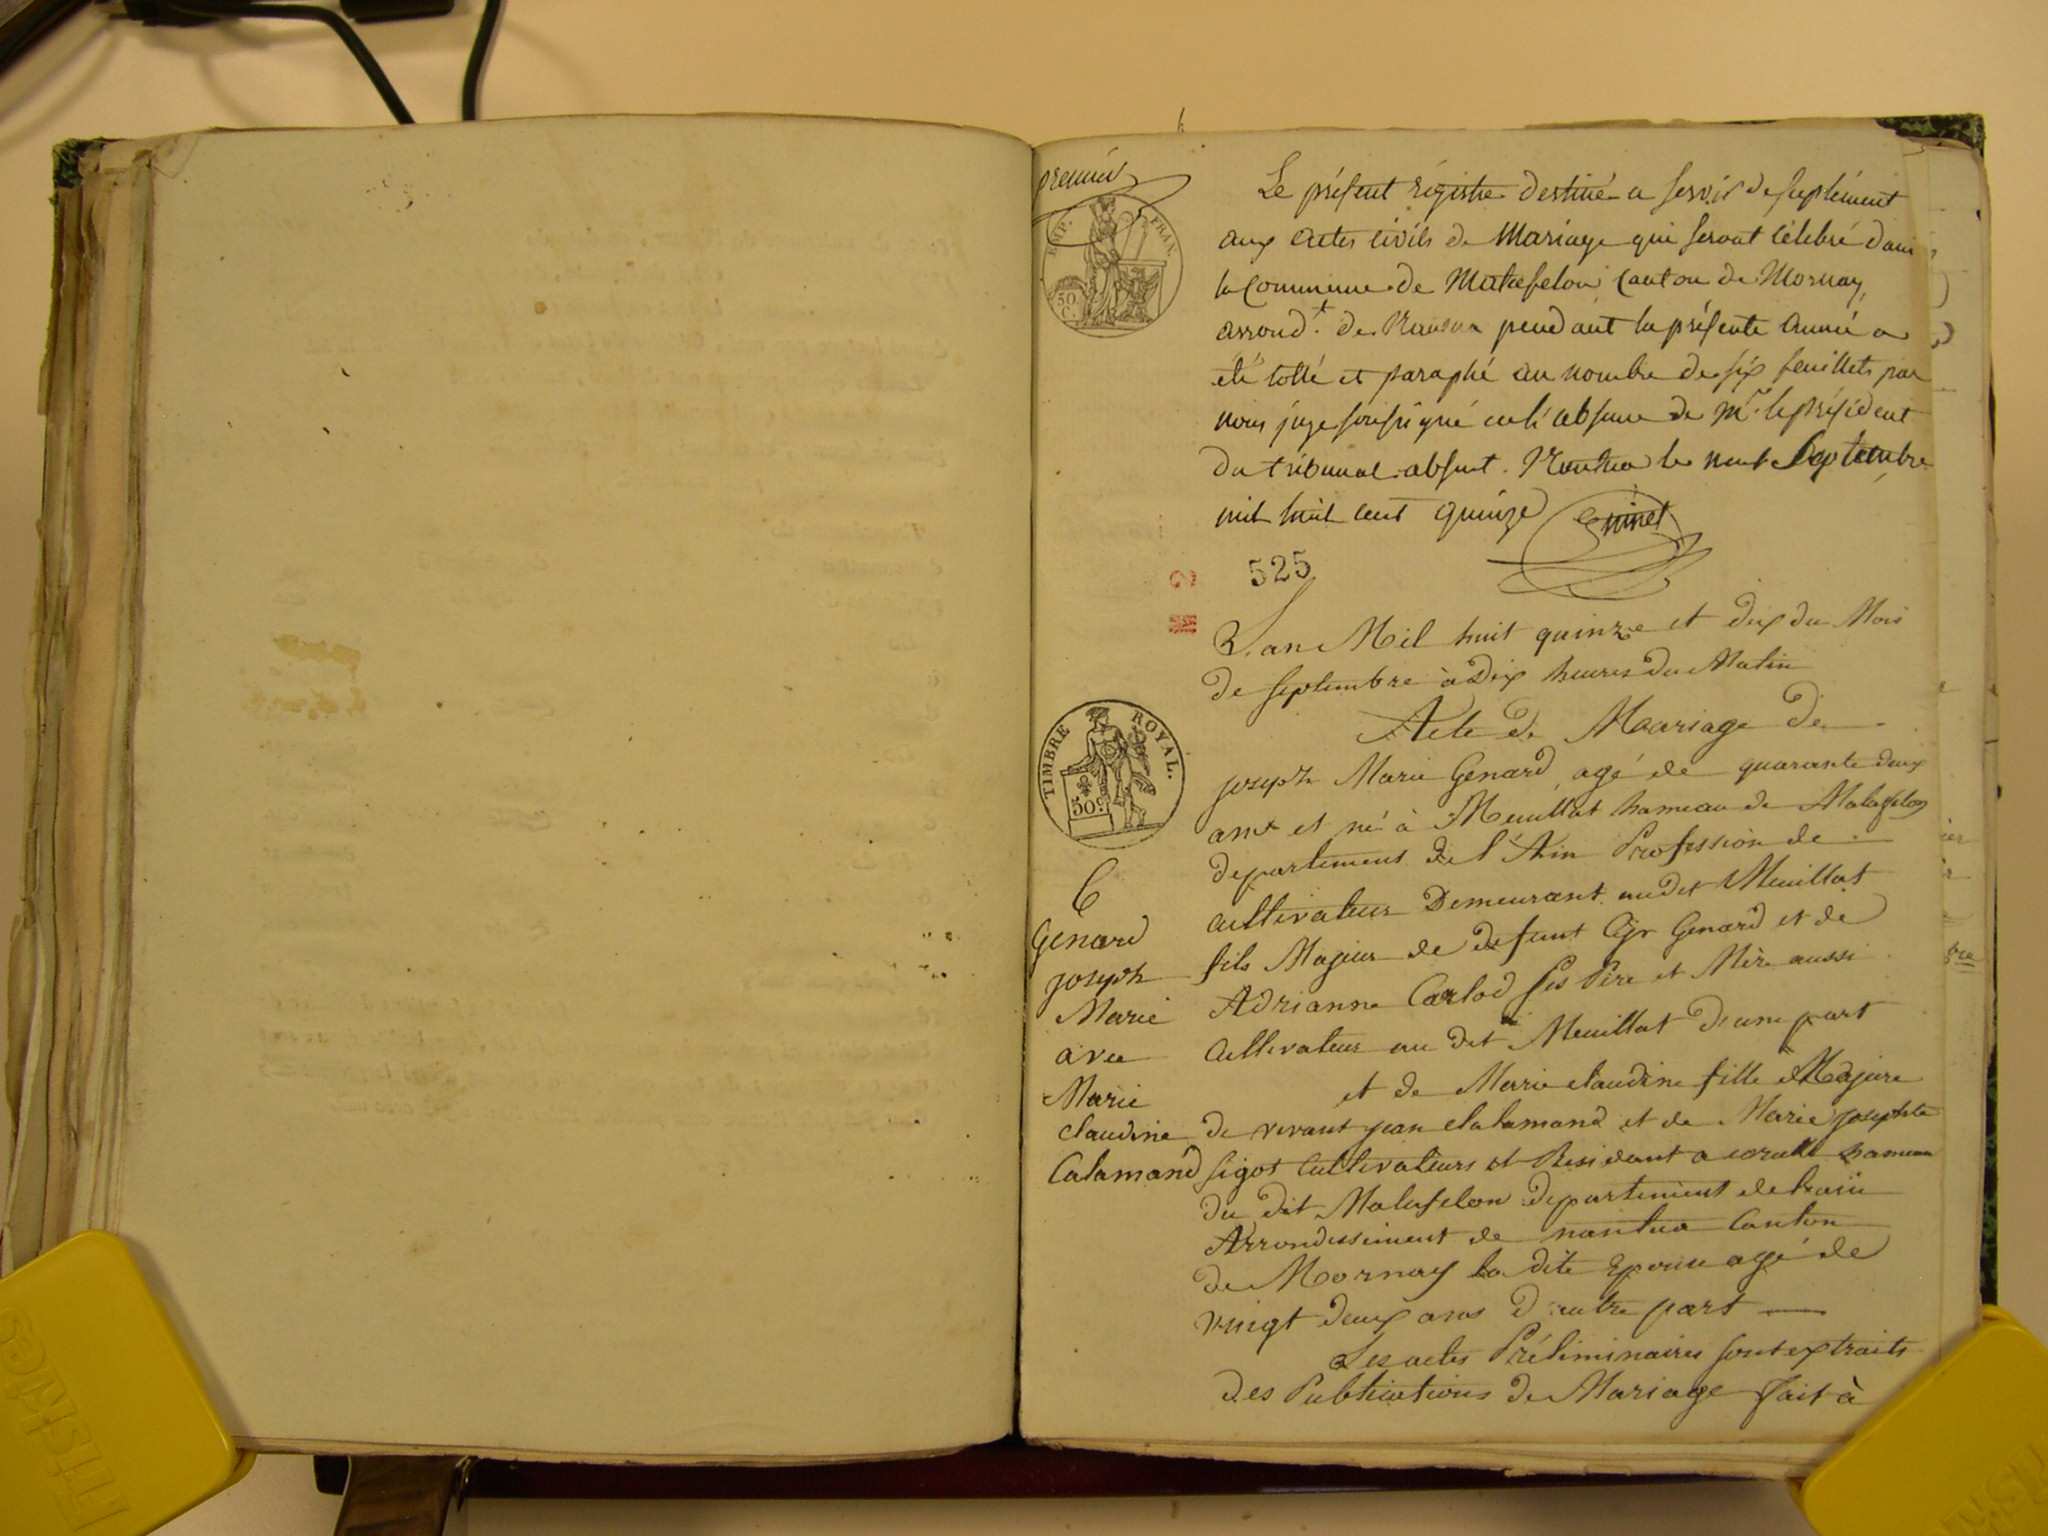 premier
EMP. FRAN.
50 C.
Le présent régistre destiné a servir de suplément
aux actes civils de Mariage qui seront célébré dans
la Commune de Matafelon Canton de Mornay,
arrond.t de Nantua pendant la présente année a
été cotté et paraphé au nombre de six feuillets par
nous juge soussigné en l'absence de Mr. le président
du tribunal absent. Nantua le neuf Septembre
mil huit cent quinze
525
L'an Mil huit quinze et dix du Mois
de septembre à Dix heures du Matin
Acte de Mariage de
joseph Marie Genard agé de quarante deux
ans et né à Meuillat hameau de Matafelon
departement de l'Ain Profession de
cultivateur Demeurant audit Meuillat
fils Majeur de defunt Cyr Genard et de
Adrianne Carlod ses Père et Mère aussi
Cultivateur au dit Meuillat d'une part
et de Marie claudine fille Majure
de vivant jean Calamand et de Marie josephte
sigot Cultivateurs et Residant a corcelle hameau
du dit Matafelon departement de l'ain
Arrondissement de nantua Canton
de Mornay la dite Epouse agé de
vingt deux ans d'autre part
Les actes Préliminaires sont extraits
des Publications de Mariage fait à
TIMBRE ROYAL.
50c
6
Genard
joseph
Marie
avec
Marie
claudine
Calamand